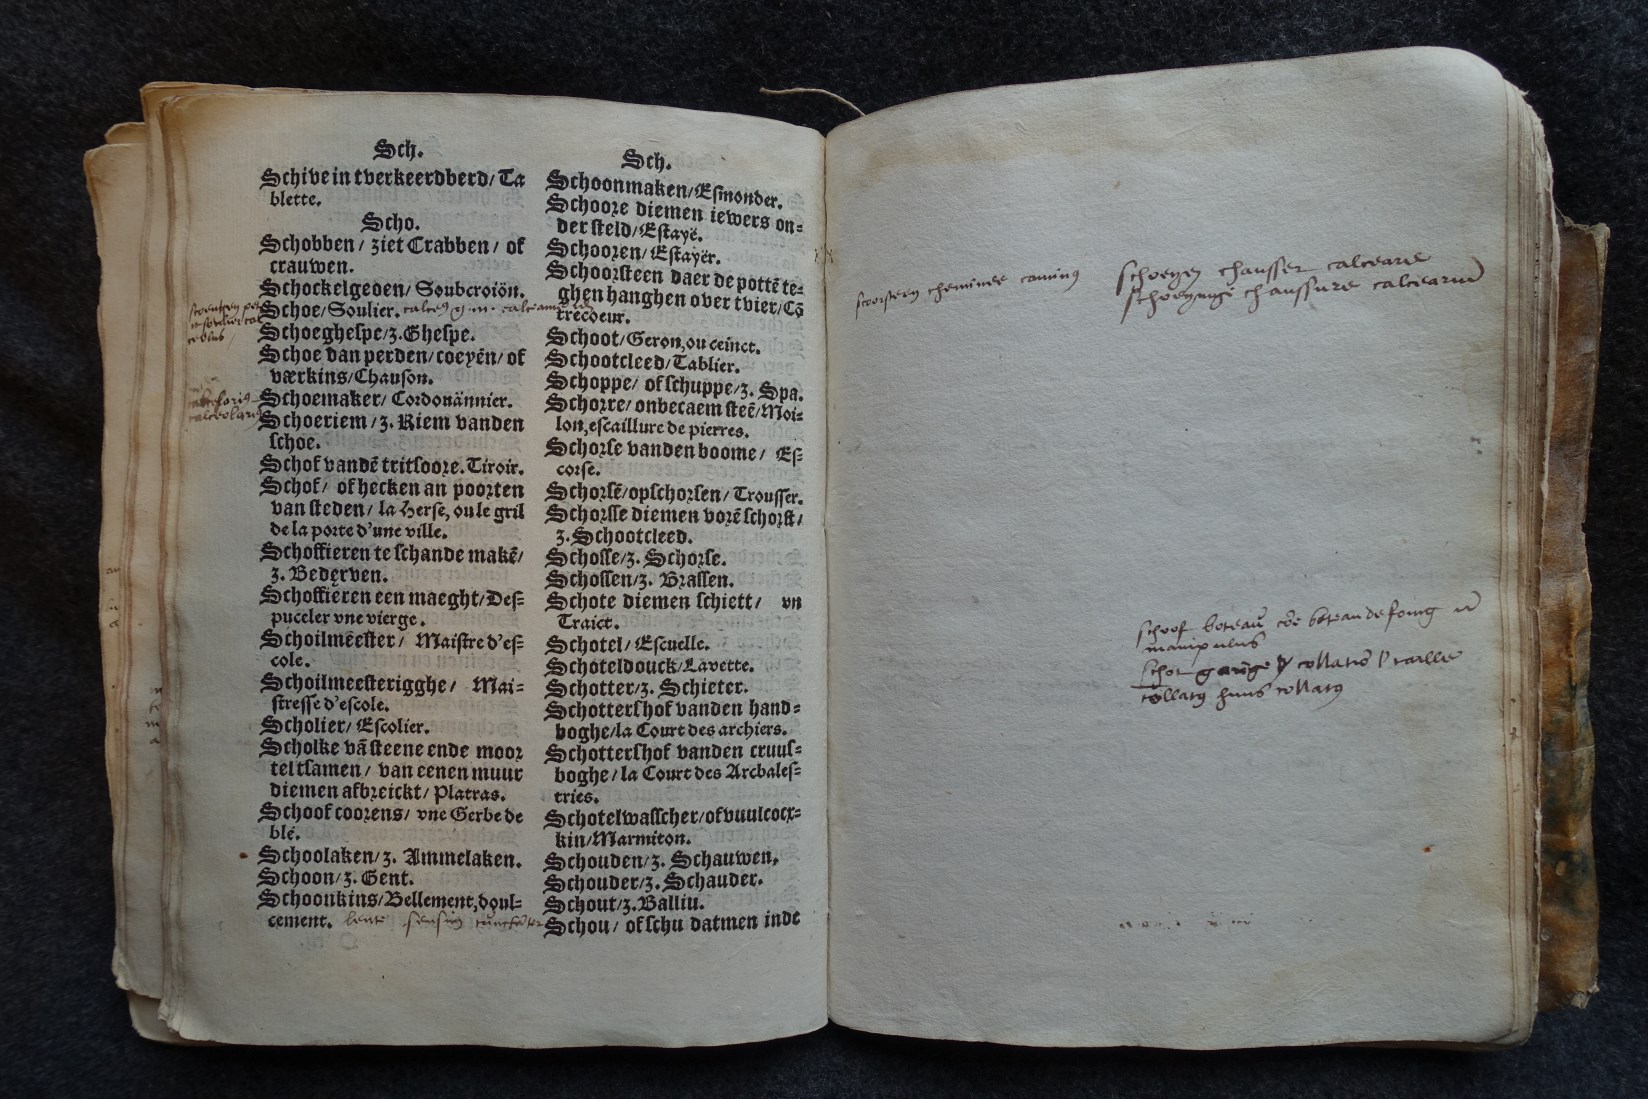 Sch.
Schive in tverkeerdberd/ Ta
blette.
Scho.
Schobben/ ziet Crabben/ of
crauwen.
Schockelgeden/ Soubcroiön.
Schoe/ Soulier.
Schoeghespe/ z. Ghespe.
Schoe dan perden/ coeyēn/ of
værkins/ Chauson.
Schoemaker/ Cordonännier.
Schoeriem/ z. Riem vanden
schoe.
Schof vandē tritsoore. Tiroir.
Schof/ of hecken an poorten
van steden/ la Herse, ou le gril
de la porte d'une ville.
Schoffieren te schande makē/
z. Bederven.
Schoffieren een maeght/ Des-
puceler vne vierge.
Schoilmēester/ Maistre d'es-
cole.
Schoilmeesterigghe/ Mai-
stresse d'escole.
Scholier/ Escolier.
Scholke vā steene ende moor
tel tsamen/ van eenen muur
diemen afbreickt/ Platras.
Schoof coorens/ vne Gerbe de
blé.
Schoolaken/ z. Ammelaken.
Schoon/ z. Gent.
Schoonkins/ Bellement, doul-
cement. lente sensim
Sch.
Schoonmaken/ Esmonder.
Schoore diemen iewers on-
der steld/ Estaye.
Schooren/ Estayër.
Schoorsteen daer de pottē te-
ghen hanghen over tvier/ Cō
trecoeur.
Schoot/ Geron, ou ceinct.
Schootcleed/ Tablier.
Schoppe/ of schuppe/ z. Spa.
Schorre/ onbecaem steē/ Moi-
lon, escaillure de pierres.
Schorse vanden boome/ Es-
corse.
Schorsē/ opschorsen/ Trousser.
Schorsse diemen vorē schorst/
z. Schootcleed.
Schosse/ z. Schorse.
Schossen/ z. Brassen.
Schote diemen schiett/ vn
Traict.
Schotel/ Escuelle.
Schoteldouck/ Lavette.
Schotter/ z. Schieter.
Schottershof vanden hand-
boghe/ la Court des archiers.
Schottershof vanden cruus-
boghe/ la Court des Arbales-
tries.
Schotelwasscher/ of vuulcocx-
kin/ Marmiton.
Schouden/ z. Schauwen.
Schouder/ z. Schauder.
Schout/ z. Balliu.
Schou/ of schu datmen inde
scorsteen cheminee caminus
schoeyen chausser calceare
schoeyinge chaussure calcearium
schoof boteau boteau de foing
manipulus
schot collatiō taille